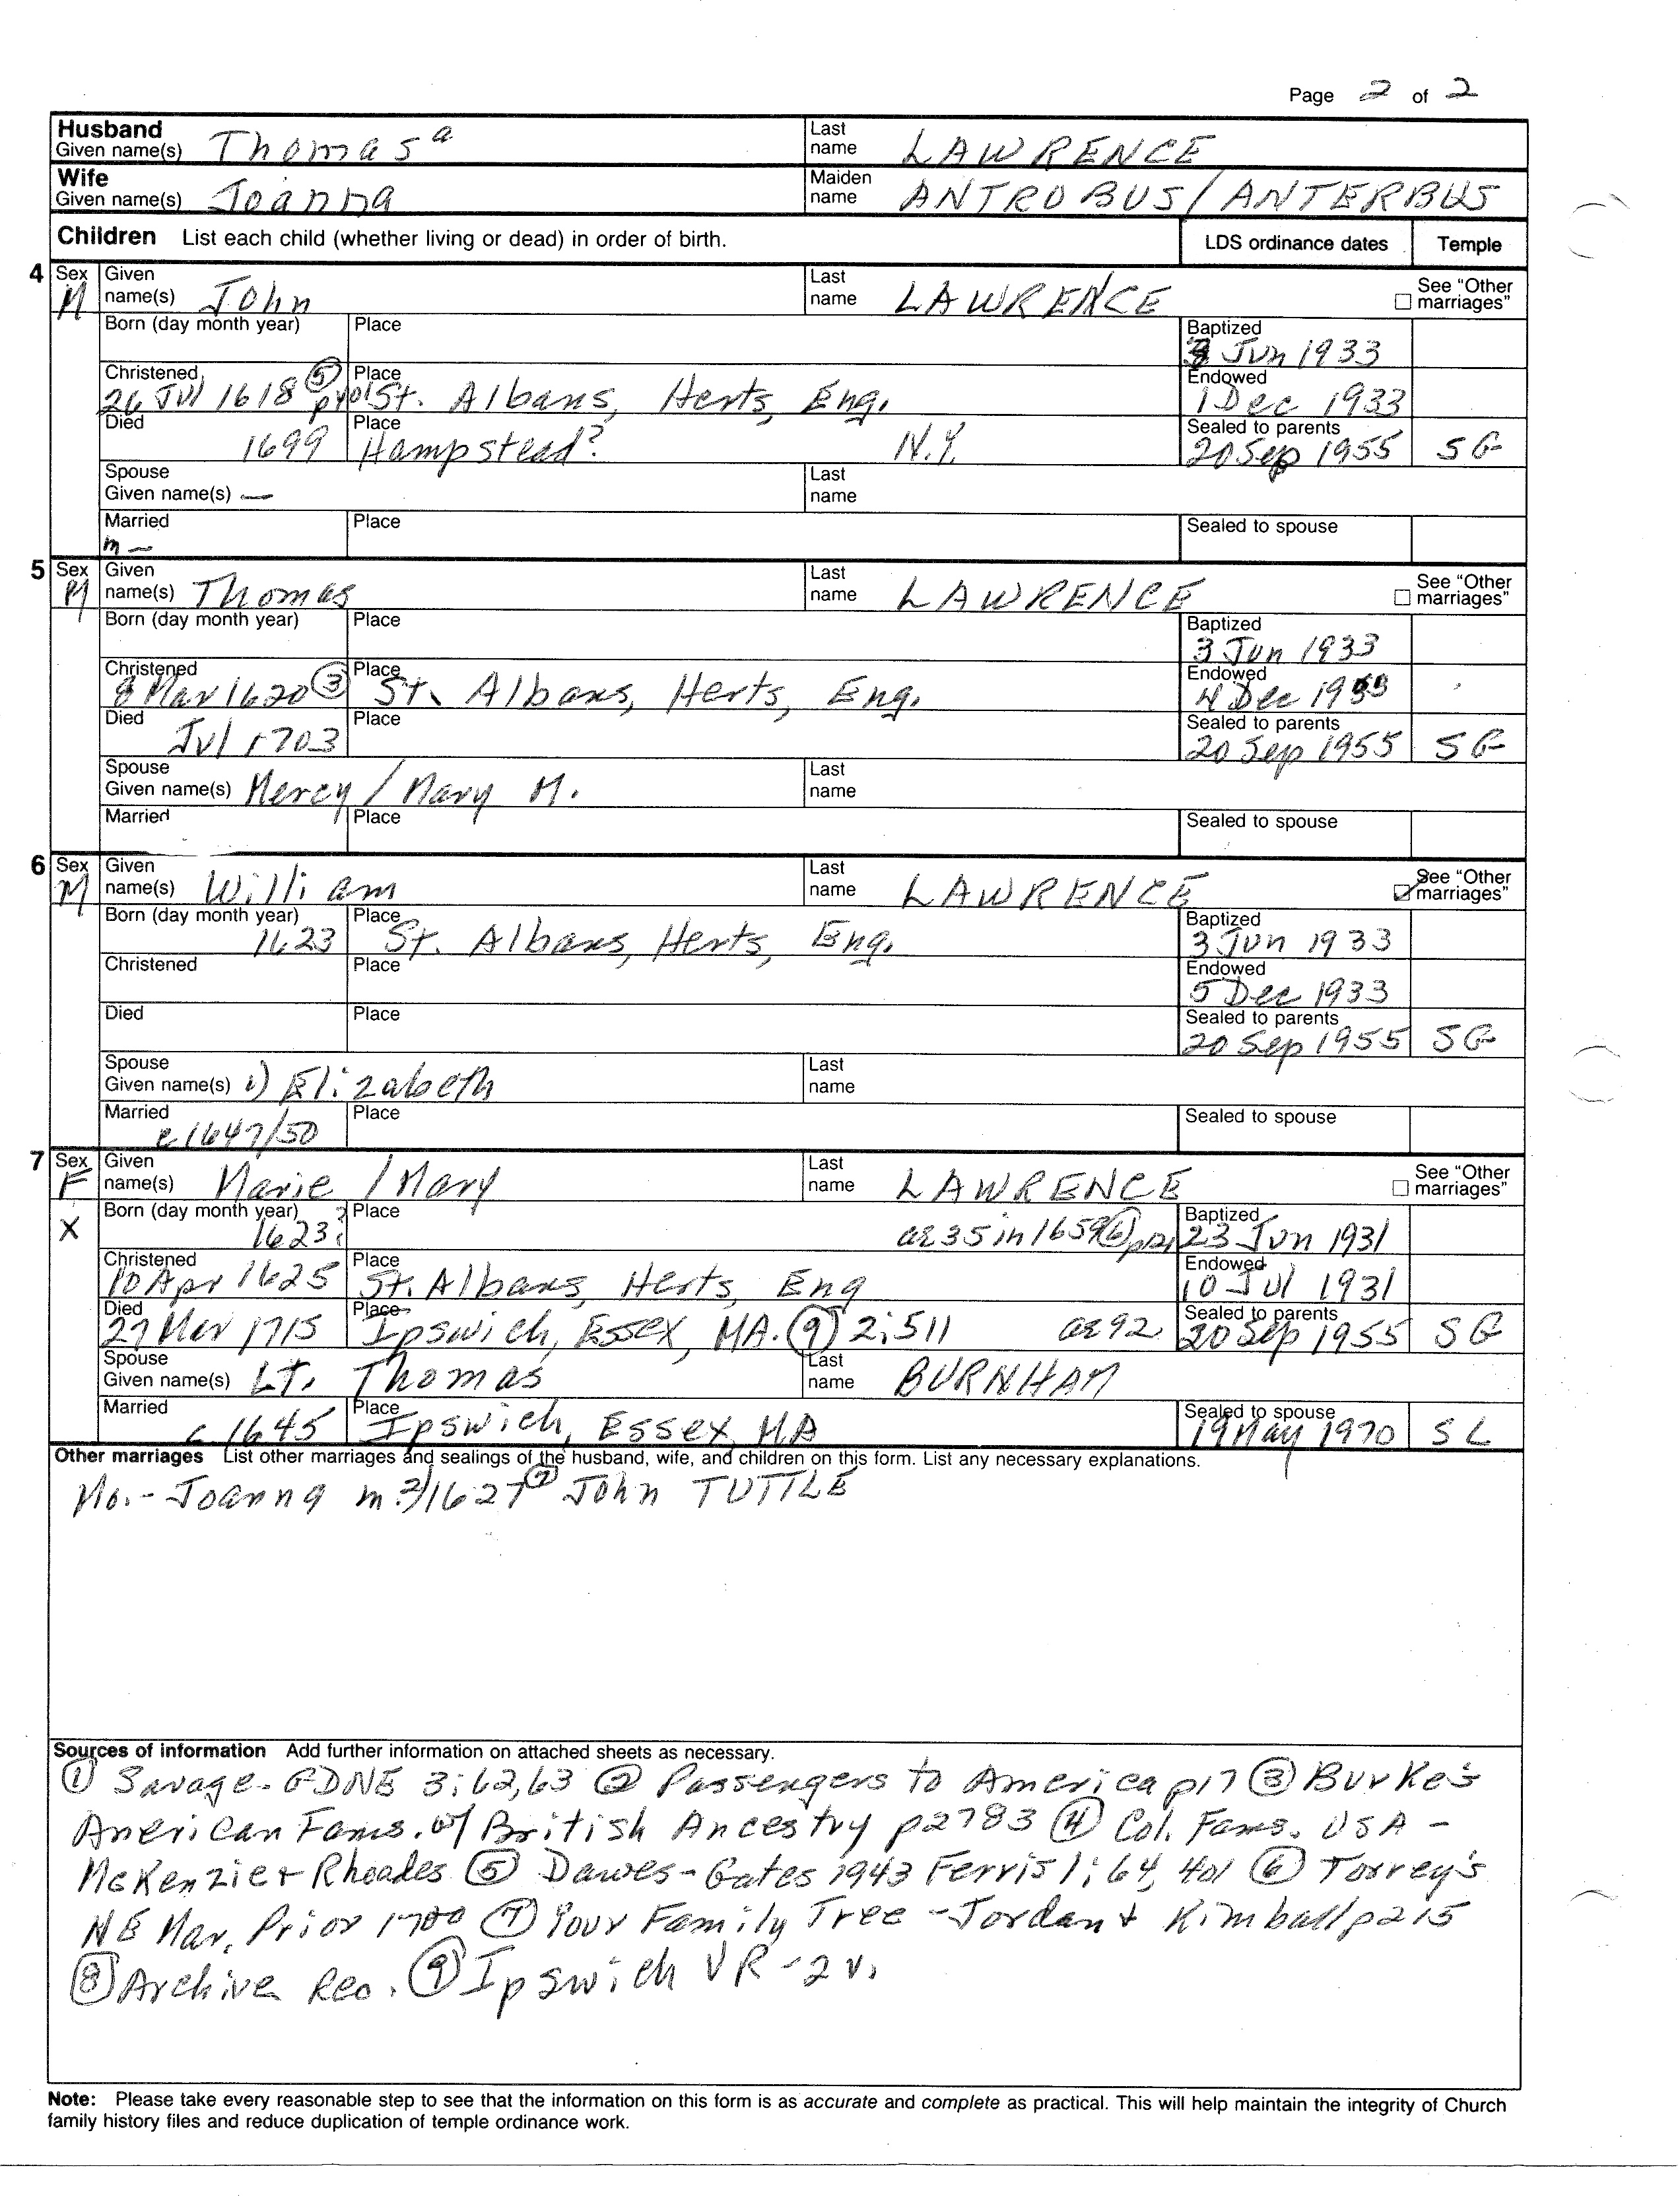 Page 2 of 2
Husband Given name(s) Thomas a Last name LAWRENCE
Wife Given name(s) Joanna Maiden name ANTROBUS/ANTERBUS
Children List each child (whether living or dead) in order of birth. LDS ordinance dates Temple
4 Sex M Given name(s) John Last name LAWRENCE See "Other marriages"
Born (day month year) Place Baptized 3 Jun 1933
Christened 26 Jul 1618 ⑤ p401 Place St. Albans, Herts, Eng. Endowed 1 Dec 1933
Died 1699 Place Hampstead? N.Y. Sealed to parents 20 Sep 1955 SG
Spouse Given name(s) — Last name
Married m — Place Sealed to spouse
5 Sex M Given name(s) Thomas Last name LAWRENCE See "Other marriages"
Born (day month year) Place Baptized 3 Jun 1933
Christened 8 Mar 1620 ③ Place St. Albans, Herts, Eng. Endowed 4 Dec 1933
Died Jul 1703 Place Sealed to parents 20 Sep 1955 SG
Spouse Given name(s) Mercy / Mary M. Last name
Married Place Sealed to spouse
6 Sex M Given name(s) William Last name LAWRENCE See "Other marriages"
Born (day month year) 1623 Place St. Albans, Herts, Eng. Baptized 3 Jun 1933
Christened Place Endowed 5 Dec 1933
Died Place Sealed to parents 20 Sep 1955 SG
Spouse Given name(s) 1) Elizabeth Last name
Married c 1647/50 Place Sealed to spouse
7 Sex F Given name(s) Marie / Mary Last name LAWRENCE See "Other marriages"
X Born (day month year) 1623? Place ae 35 in 1659 ⑥ Baptized 23 Jun 1931
Christened 10 Apr 1625 Place St. Albans, Herts, Eng Endowed 10 Jul 1931
Died 27 Mar 1715 Place Ipswich, Essex, MA. ⑨ 2:511 ae 92 Sealed to parents 20 Sep 1955 SG
Spouse Given name(s) Lt. Thomas Last name BURNHAM
Married c 1645 Place Ipswich, Essex, MA Sealed to spouse 19 May 1970 SL
Other marriages List other marriages and sealings of the husband, wife, and children on this form. List any necessary explanations.
Mo.- Joanna m 2)1627 ⑦ John TUTTLE
Sources of information Add further information on attached sheets as necessary.
① Savage - GDNE 3:62,63 ② Passengers to America p17 ③ Burke's
American Fams. w/ British Ancestry p2783 ④ Col. Fams. USA -
McKenzie + Rhoades ⑤ Dawes-Gates 1943 Ferris 1:64, 401 ⑥ Torrey's
NE Mar. Prior 1700 ⑦ Your Family Tree - Jordan + Kimball p215
⑧ Archive Rec. ⑨ Ipswich VR - 2 v.
Note: Please take every reasonable step to see that the information on this form is as accurate and complete as practical. This will help maintain the integrity of Church
family history files and reduce duplication of temple ordinance work.